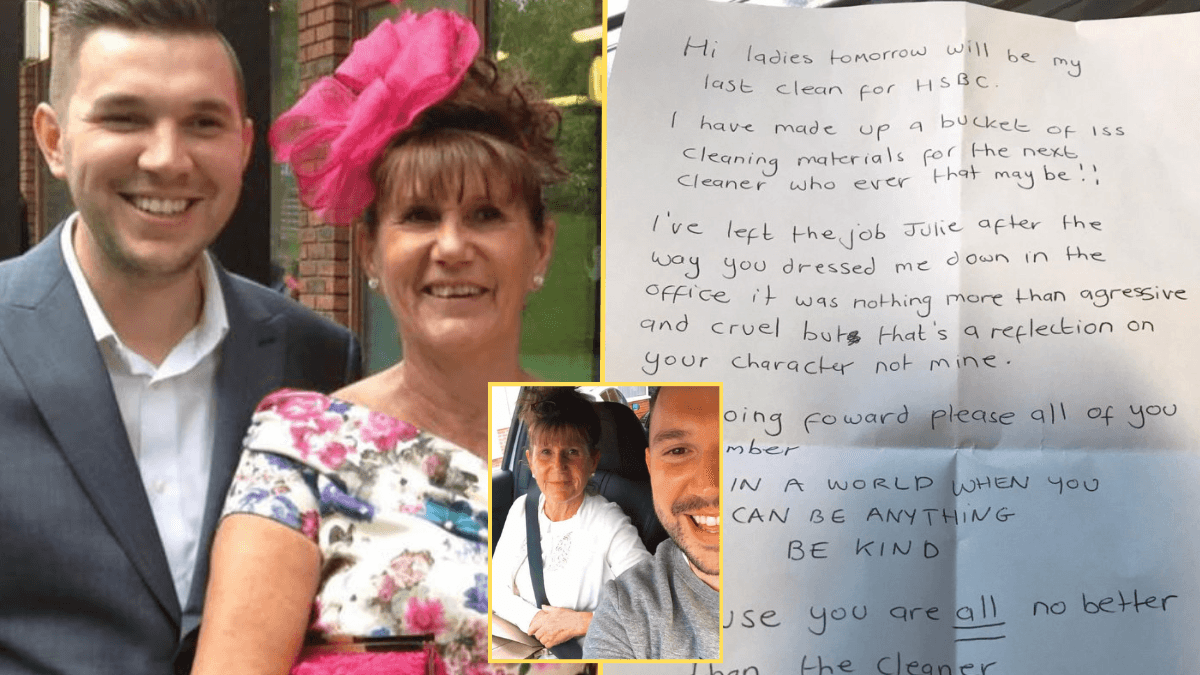 Hi ladies tomorrow will be my
last clean for HSBC.
I have made up a bucket of ISS
cleaning materials for the next
cleaner who ever that may be!!
I've left the job Julie after the
way you dressed me down in the
office it was nothing more than agressive
and cruel but that's a reflection on
your character not mine.
oing foward please all of you
mber
IN A WORLD WHEN YOU
CAN BE ANYTHING
BE KIND
use you are all no better
than the cleaner